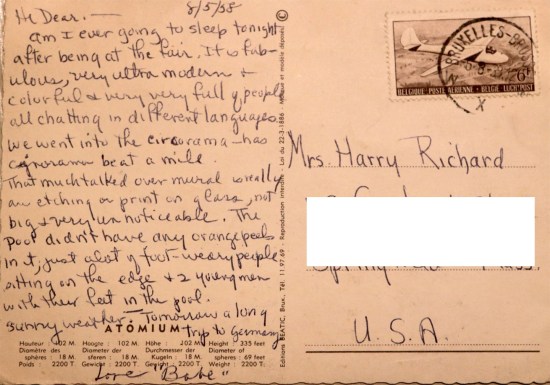 8/5/58
Hi Dear. —
Am I ever going to sleep tonight
after being at the fair. It is fab-
ulous, very ultra modern +
colorful & very very full of people
all chatting in different languages.
We went into the circorama — has
beat a mile.
That much talked over mural is really
an etching or print on glass, not
big & very unnoticeable. The
pool didn't have any orange peels
in it, just a lot of foot-weary people
sitting on the edge & 2 young men
with their feet in the pool.
Sunny weather. Tomorrow a long
trip to Germany
ATOMIUM
Hauteur : 102 M.
Diamètre des
sphères : 18 M.
Poids : 2200 T.
Hoogte : 102 M.
Diameter der
sferen : 18 M.
Gewicht : 2200 T.
Höhe : 102 M.
Durchmesser der
Kugeln : 18 M.
Gewicht : 2200 T.
Height : 335 feet
Diameter of
spheres : 69 feet
Weight : 2200 T.
Love "Babe"
Editions BEATIC, Brux., Tél : 11.97.69 - Reproduction interdite - Loi du 22-3-1886 - et modèle déposés
©
BRUXELLES-BRU
X
BELGIQUE·POSTE AERIENNE - BELGIE LUCHTPOST
6F
Mrs. Harry Richard
U.S.A.